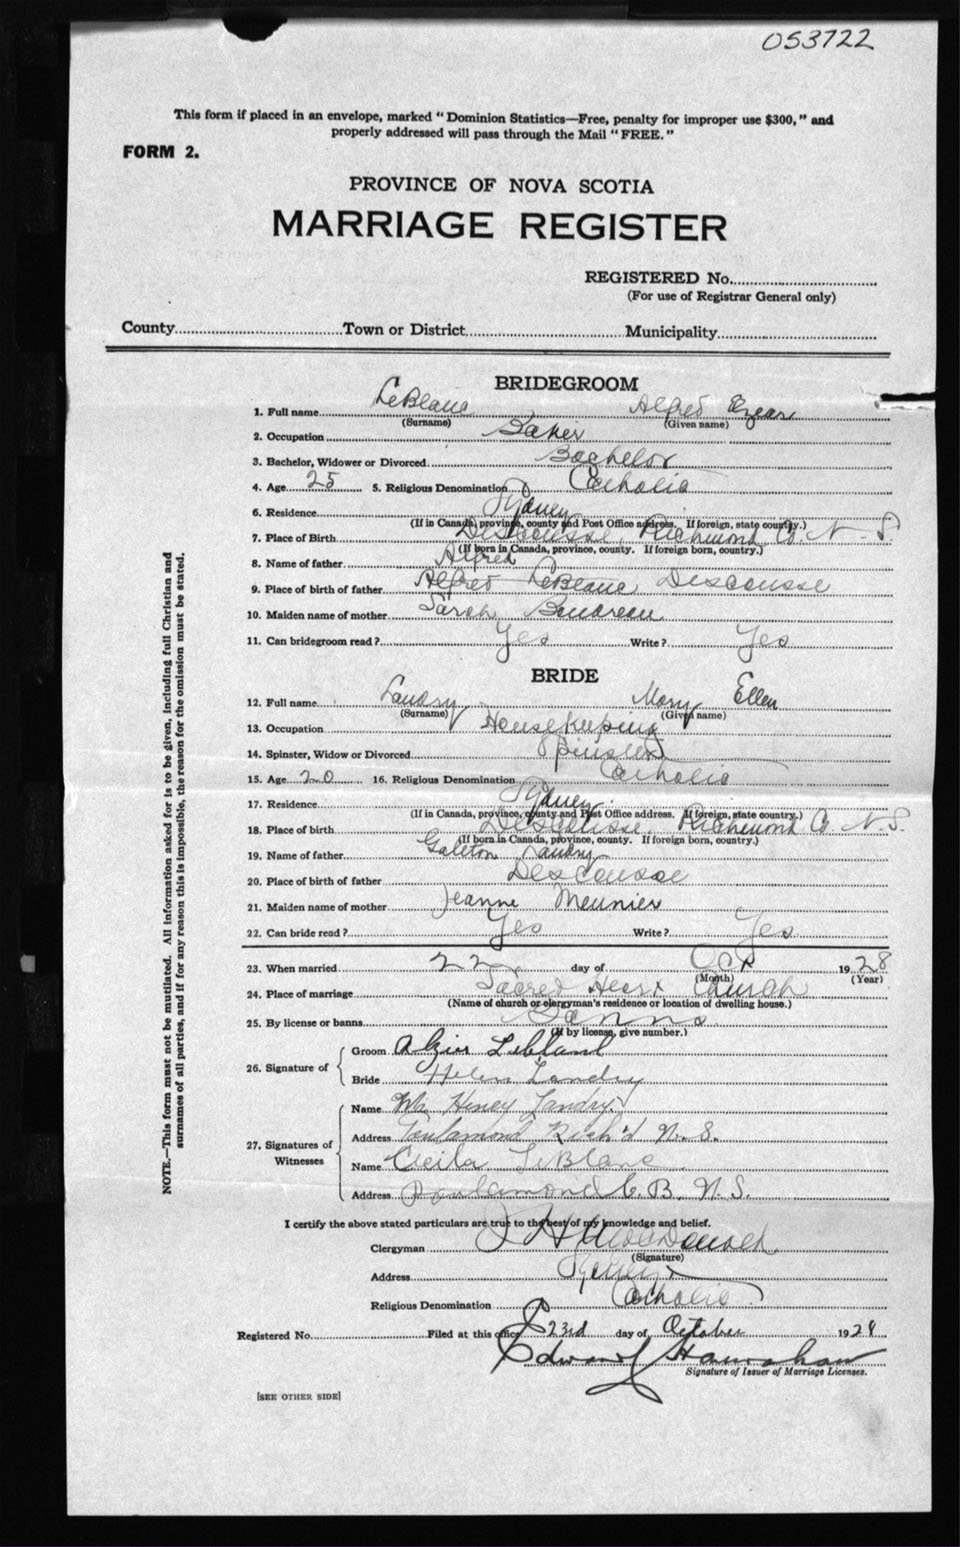 053722
This form if placed in an envelope, marked "Dominion Statistics—Free, penalty for improper use $300," and
properly addressed will pass through the Mail "FREE."
FORM 2.
PROVINCE OF NOVA SCOTIA
MARRIAGE REGISTER
REGISTERED No.
(For use of Registrar General only)
County Town or District Municipality
BRIDEGROOM
1. Full name LeBlanc Alfred
(Surname) (Given name)
2. Occupation Baker
3. Bachelor, Widower or Divorced Bachelor
4. Age 25 5. Religious Denomination Catholic
6. Residence Sydney
(If in Canada, province, county and Post Office address. If foreign, state country.)
7. Place of Birth Descousse, Richmond Co. N.S.
(If born in Canada, province, county. If foreign born, country.)
8. Name of father Alfred
9. Place of birth of father Alfred LeBlanc Descousse
10. Maiden name of mother Sarah Boudreau
11. Can bridegroom read? Yes Write? Yes
BRIDE
12. Full name Landry Mary Ellen
(Surname) (Given name)
13. Occupation Housekeeping
14. Spinster, Widow or Divorced Spinster
15. Age 20 16. Religious Denomination Catholic
17. Residence Sydney
(If in Canada, province, county and Post Office address. If foreign, state country.)
18. Place of birth Descousse, Richmond Co N.S.
(If born in Canada, province, county. If foreign born, country.)
19. Name of father Landry
20. Place of birth of father Descousse
21. Maiden name of mother Jeanne Meunier
22. Can bride read? Yes Write? Yes
23. When married 22 day of Oct 1928
(Month) (Year)
24. Place of marriage Sacred Heart Church
(Name of church or clergyman's residence or location of dwelling house.)
25. By license or banns Banns
(If by license, give number.)
26. Signature of
Groom
Bride Helen Landry
27. Signatures of Witnesses
Name Wm Henry Landry
Address Poulamond Rich'd N.S.
Name Cecila LeBlanc
Address Poulamond C.B. N.S.
I certify the above stated particulars are true to the best of my knowledge and belief.
Clergyman MacDonald
(Signature)
Address Sydney
Religious Denomination Catholic
Registered No. Filed at this office 23rd day of October 1928
Edward
Signature of Issuer of Marriage Licenses.
[SEE OTHER SIDE]
NOTE.—This form must not be mutilated. All information asked for is to be given, including full Christian and
surnames of all parties, and if for any reason this is impossible, the reason for the omission must be stated.